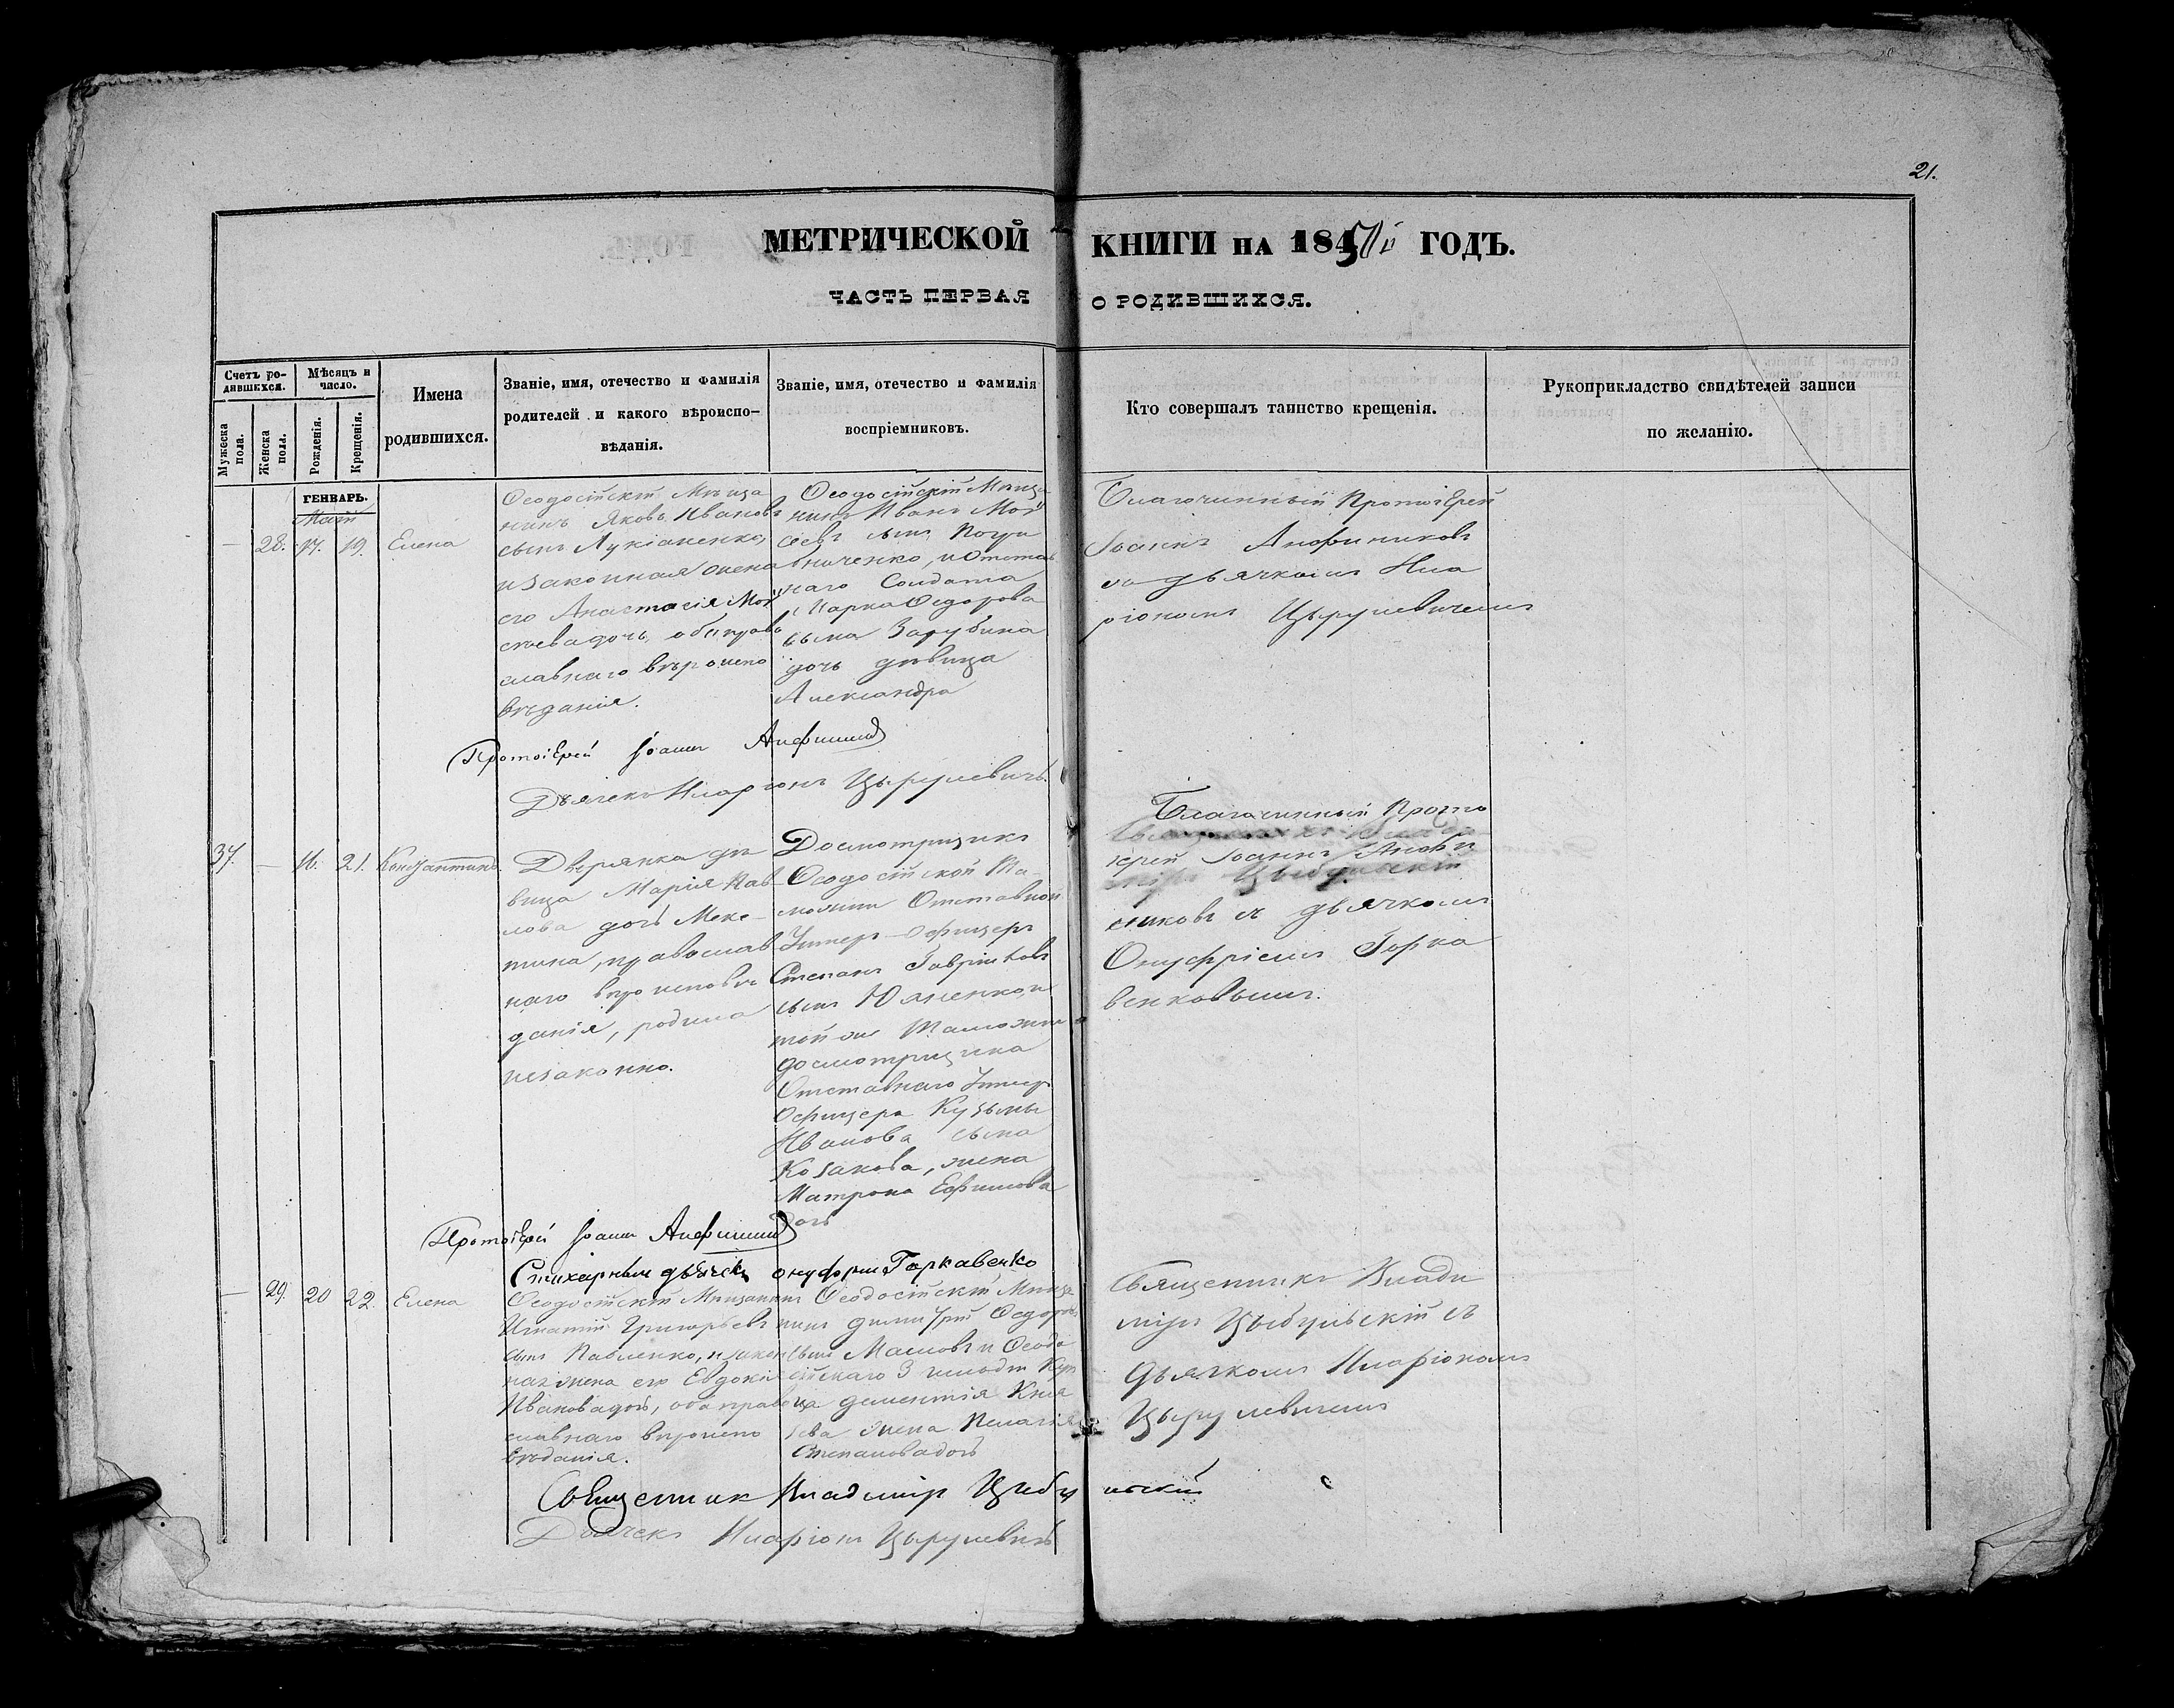 21.
МЕТРИЧЕСКОЙ КНИГИ НА 1850й ГОДЪ.
ЧАСТЬ ПЕРВАЯ О РОДИВШИХСЯ.
Счетъ родившихся.
Мужеска пола.
Женска пола.
Мѣсяцъ и число.
Рожденія.
Крещенія.
Имена
родившихся.
Званіе, имя, отечество и фамилія
родителей и какого вѣроиспо-
вѣданія.
Званіе, имя, отечество и фамилія
воспріемниковъ.
Кто совершалъ таинство крещенія.
Рукоприкладство свидѣтелей записи
по желанію.
ГЕНВАРЬ.
Май
— 28. 17. 19. Елена
Ѳеодосійскій Мѣща
нинъ Яковъ Ивановъ
сынъ Лукіаненко,
и законная жена
его Анастасія Мои
сеева дочь, оба право
славнаго вѣроиспо
вѣданія.
Ѳеодосійскій Мѣща
нинъ Иванъ Мои
сеевъ сынъ
и Отстав
наго Солдата
Марка Ѳедорова
сына Зарубина
дочь дѣвица
Александра
Благочинный Протоіерей
Іоаннъ Анфиниковъ
съ дьячкомъ Ила
ріономъ Цырулевичемъ
Протоіерей Іоаннъ
Дьячекъ Иларіонъ Цырулевичъ.
37. — 16. 21. Константинъ.
Дворянка дѣ
вица Марія Пав
лова дочь Меке-
тина, православ
наго вѣроисповѣ
данія, родила
незаконно.
Досмотрщикъ
Ѳеодосійской Та-
можни Отставной
Унтеръ-Офицеръ
Степанъ Гавриловъ
сынъ Юженко, и
той же Таможни
досмотрщика
Отставнаго Унтеръ
Офицера Кузьмы
Иванова сына
Козакова, жена
Матрона Ефимова
дочь
Благочинный Прото
іерей Іоаннъ Анфи
никовъ съ дьячкомъ
Онуфріемъ Горка
венковымъ.
Протоіерей Іоаннъ
Стихарный дьячекъ Онуфрій Горкавенко
— 29. 20 22. Елена
Ѳеодосійскій Мѣщанинъ
Игнатій Григорьевъ
сынъ Павленко, и закон
ная жена его Евдокія
Иванова дочь, оба право
славнаго вѣроиспо
вѣданія.
Ѳеодосійскій Мѣща
нинъ Димитрій Ѳедоровъ
сынъ Масловъ и Ѳеодо
сійскаго 3 гильдіи Куп
ца Дементія Кня
зева жена Пелагія
Степанова дочь
Священникъ Влади
міръ Цыбульскій съ
дьячкомъ Иларіономъ
Цырулевичемъ
Священникъ Владиміръ Цыбульскій
Дьячекъ Иларіонъ Цырулевичъ